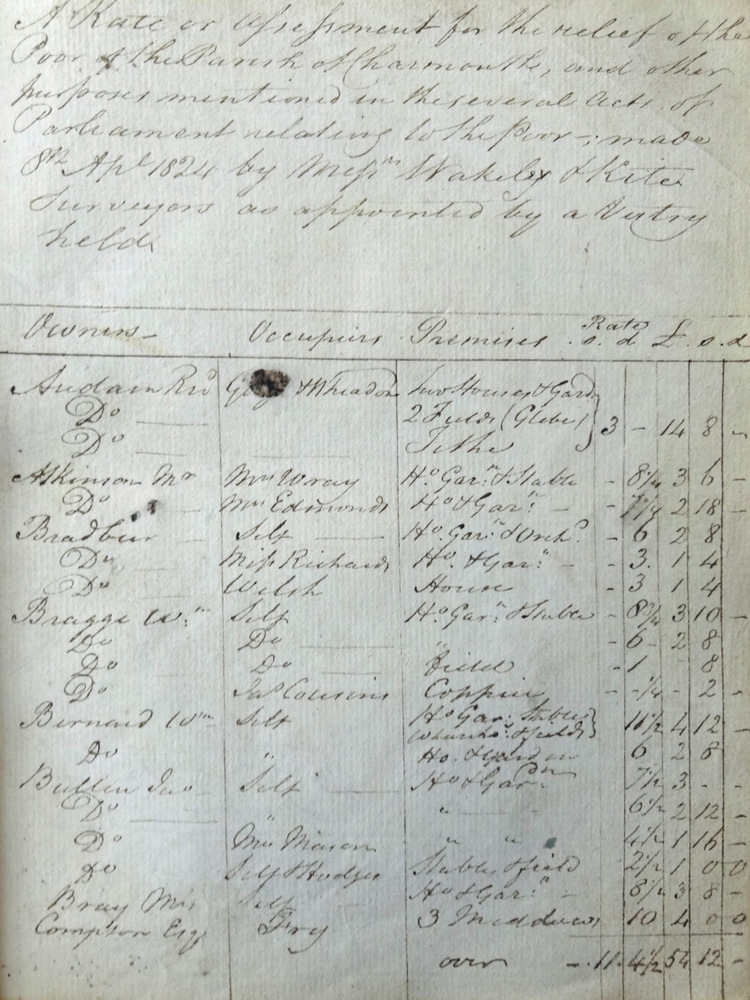 A Rate or Assessment for the relief of the
Poor of the Parish of Charmouth, and other
purposes mentioned in the several Acts of
Parliament relating to the Poor; made
8th Apl 1824 by Messrs Wakely & Kite
Surveyors as appointed by a Vestry
held
Owners Occupiers Premises Rate s. d £ s. d
Audain Revd & Wheadon Two Houses & Gard
Do 2 Fields (Glebe) 3 - 14 8 -
Do Tithe
Atkinson Mr Mrs Wray Ho. Garn & Stable - 8 1/4 3 6 -
Do Mrs Edmonds Ho & Garn - 7 1/4 2 18 -
Bradbeer Self Ho. Garn & Orchd - 6 2 8
Do Miss Richards Ho. & Garn - 3 1 4
Do Welsh House - 3 1 4
Bragge Wm Self Ho. Garn & Stable - 8 3/4 3 10 -
Do Do - 6 - 2 8
Do Do Field - 1 8
Do Jas Cousins Coppice - - 1/4 - 2 -
Bernard Wm Self Ho Gar. Stable
Wareho. & field 11 1/2 4 12 -
Do " Ho. & Garden 6 2 8
Bullen Jno Self Ho & Gardn 7 1/2 3 - -
Do " 6 1/2 2 12 -
Do Mrs Mason " " 4 1/2 1 16 -
Do Self & Hodges Stable & field 2 1/2 1 0 0
Bray Mrs Self Ho & Garn - 8 1/2 3 8 -
Compson Esq Fry 3 Meddows 10 4 0 0
over - 11 4 1/2 54 12 -